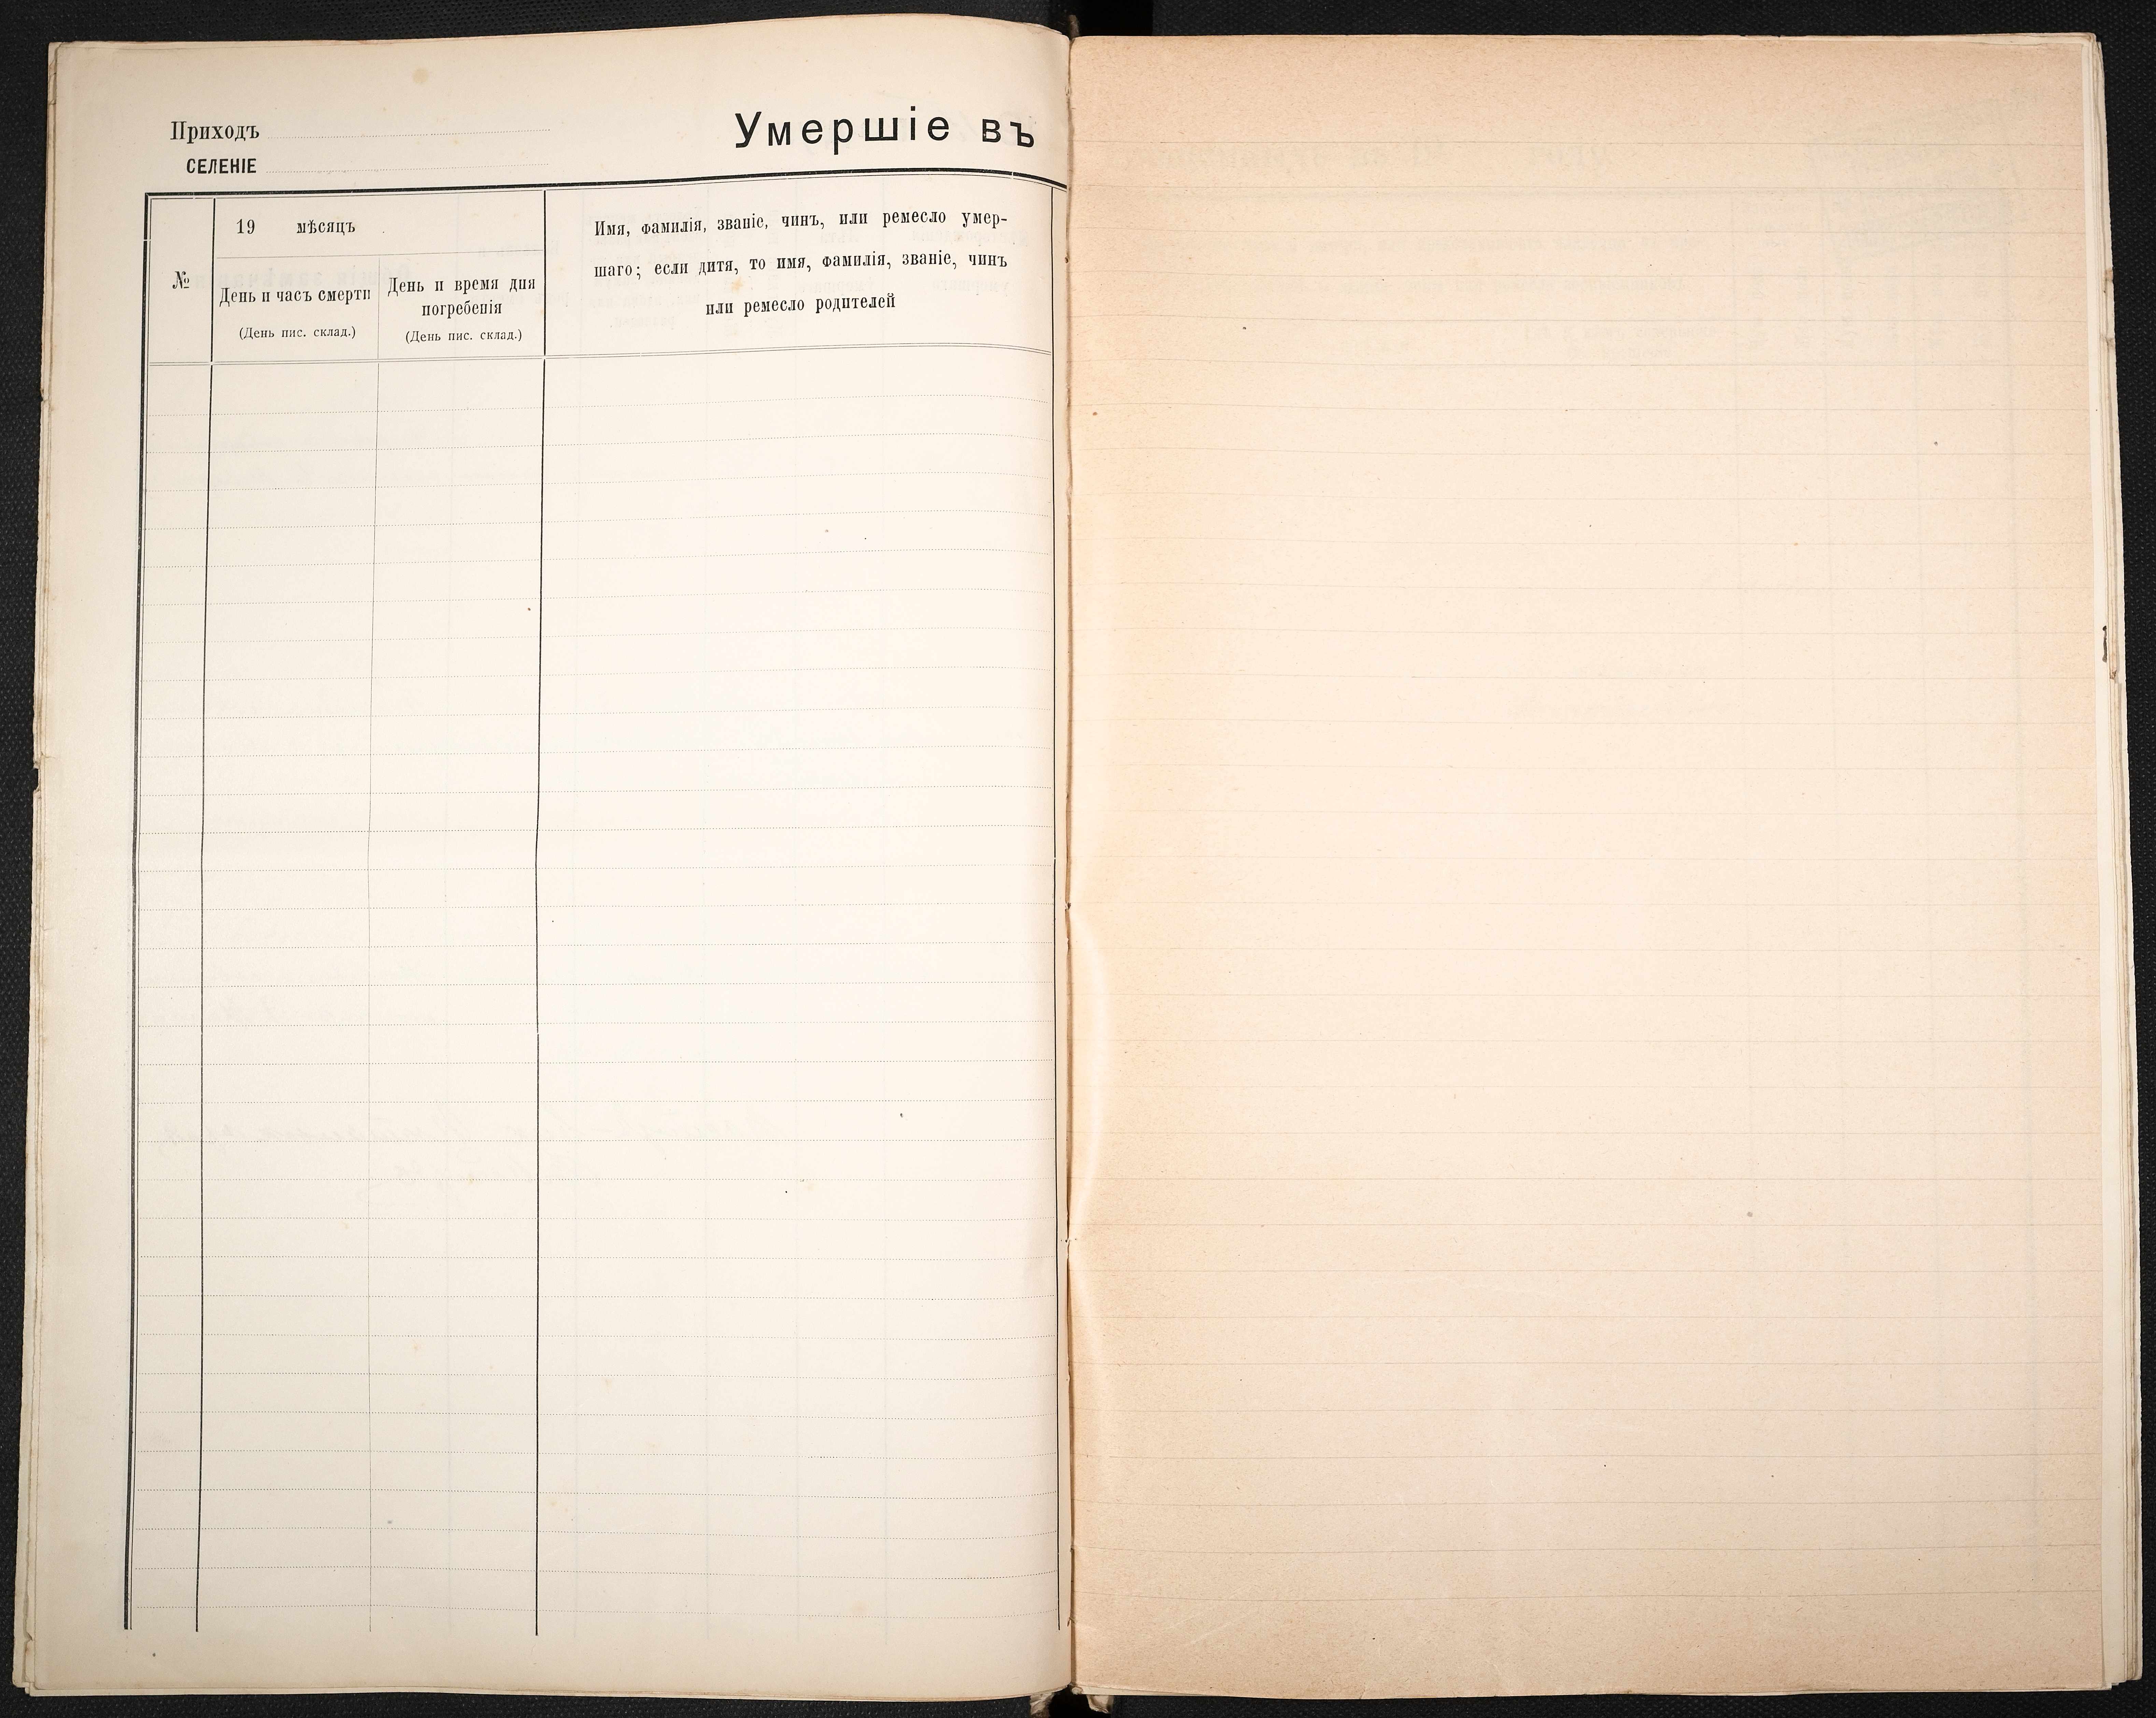 Приходъ
СЕЛЕНІЕ
Умершіе въ
№
19 мѣсяцъ
День и часъ смерти
(День пис. склад.)
День и время дня
погребенія
(День пис. склад.)
Имя, фамилія, званіе, чинъ, или ремесло умер-
шаго; если дитя, то имя, фамилія, званіе, чинъ
или ремесло родителей